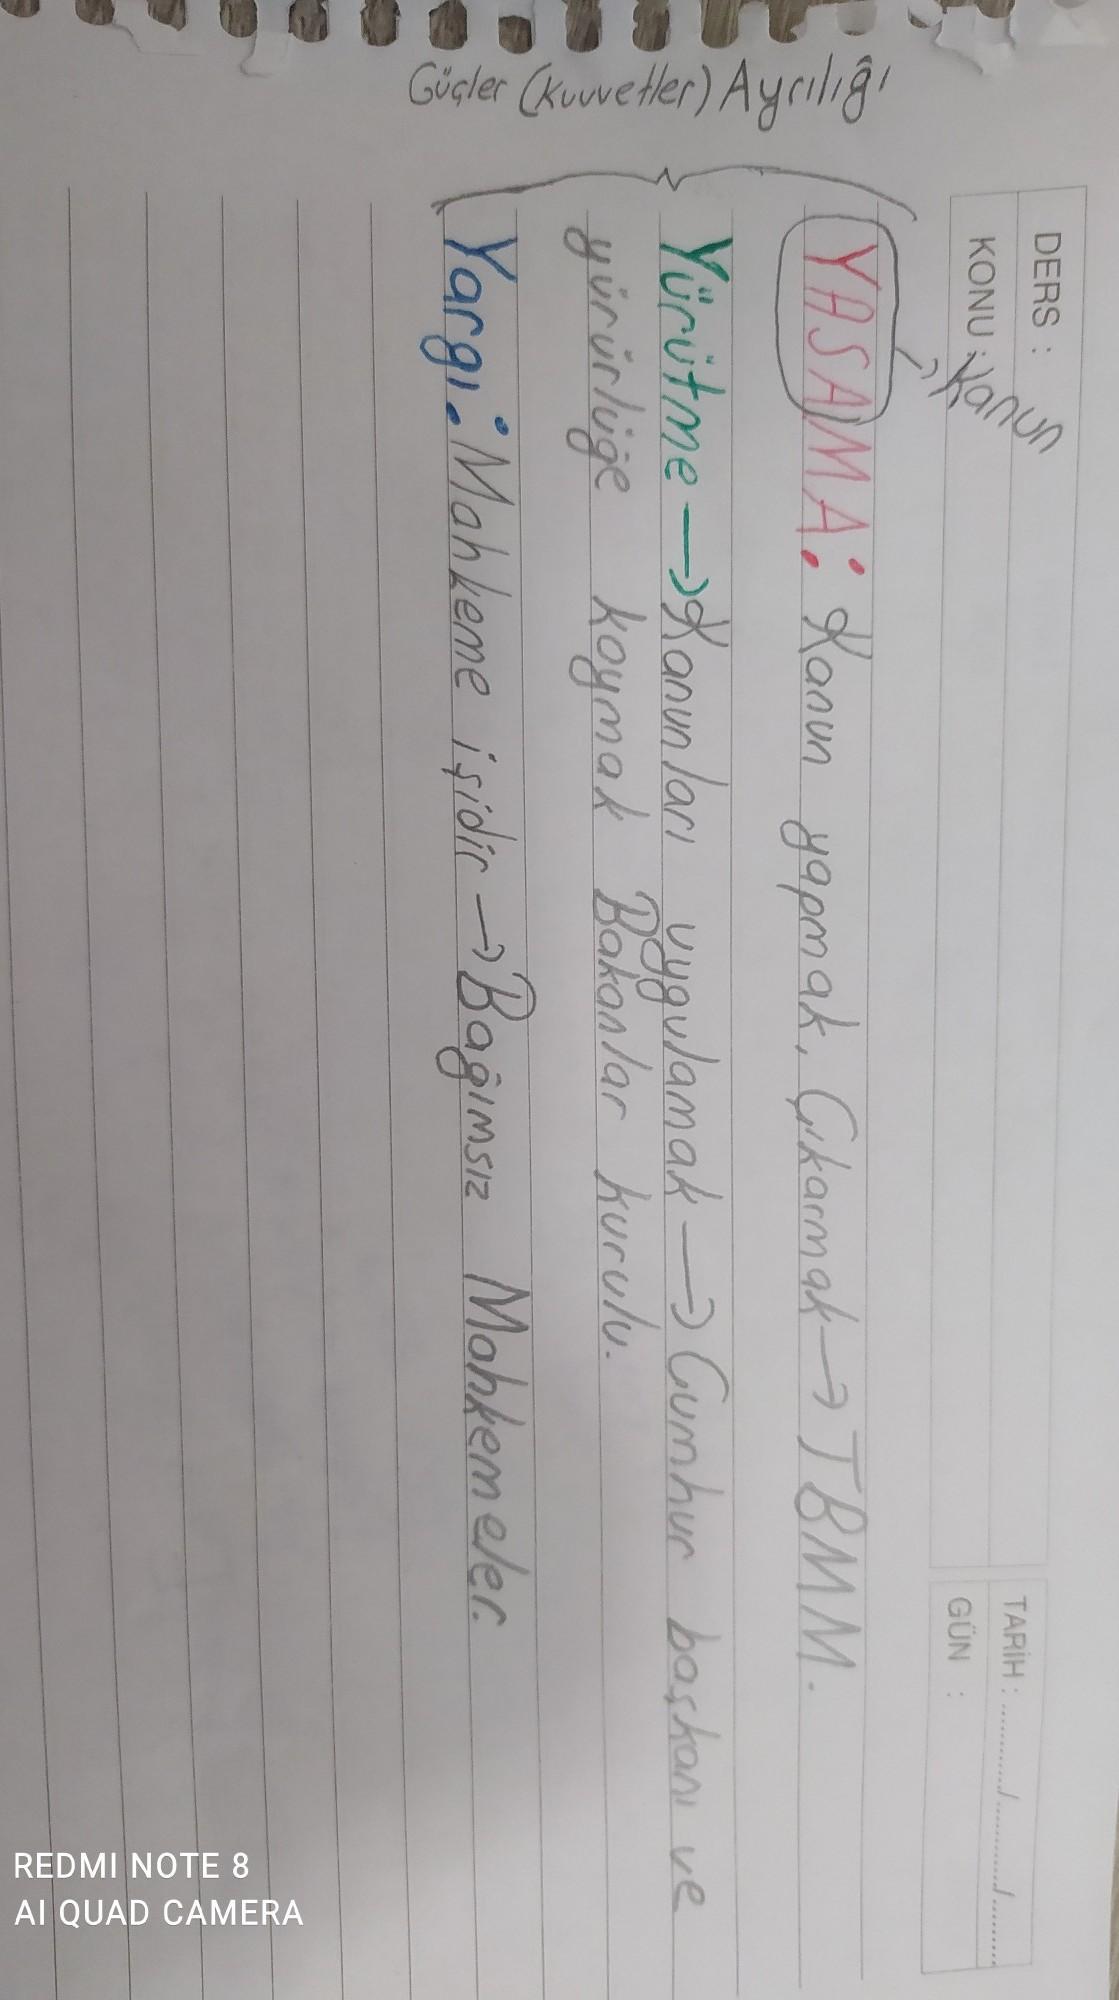 Güçler (Kuvvetler) Ayrılığı
DERS :
KONU : Kanun
TARİH : ......../......../........
GÜN :
YASAMA: Kanun yapmak, Çıkarmak → TBMM.
Yürütme → Kanunları uygulamak → Cumhur başkanı ve
yürürlüğe koymak Bakanlar kurulu.
Yargı: Mahkeme işidir → Bağımsız Mahkemeler.
REDMI NOTE 8
AI QUAD CAMERA